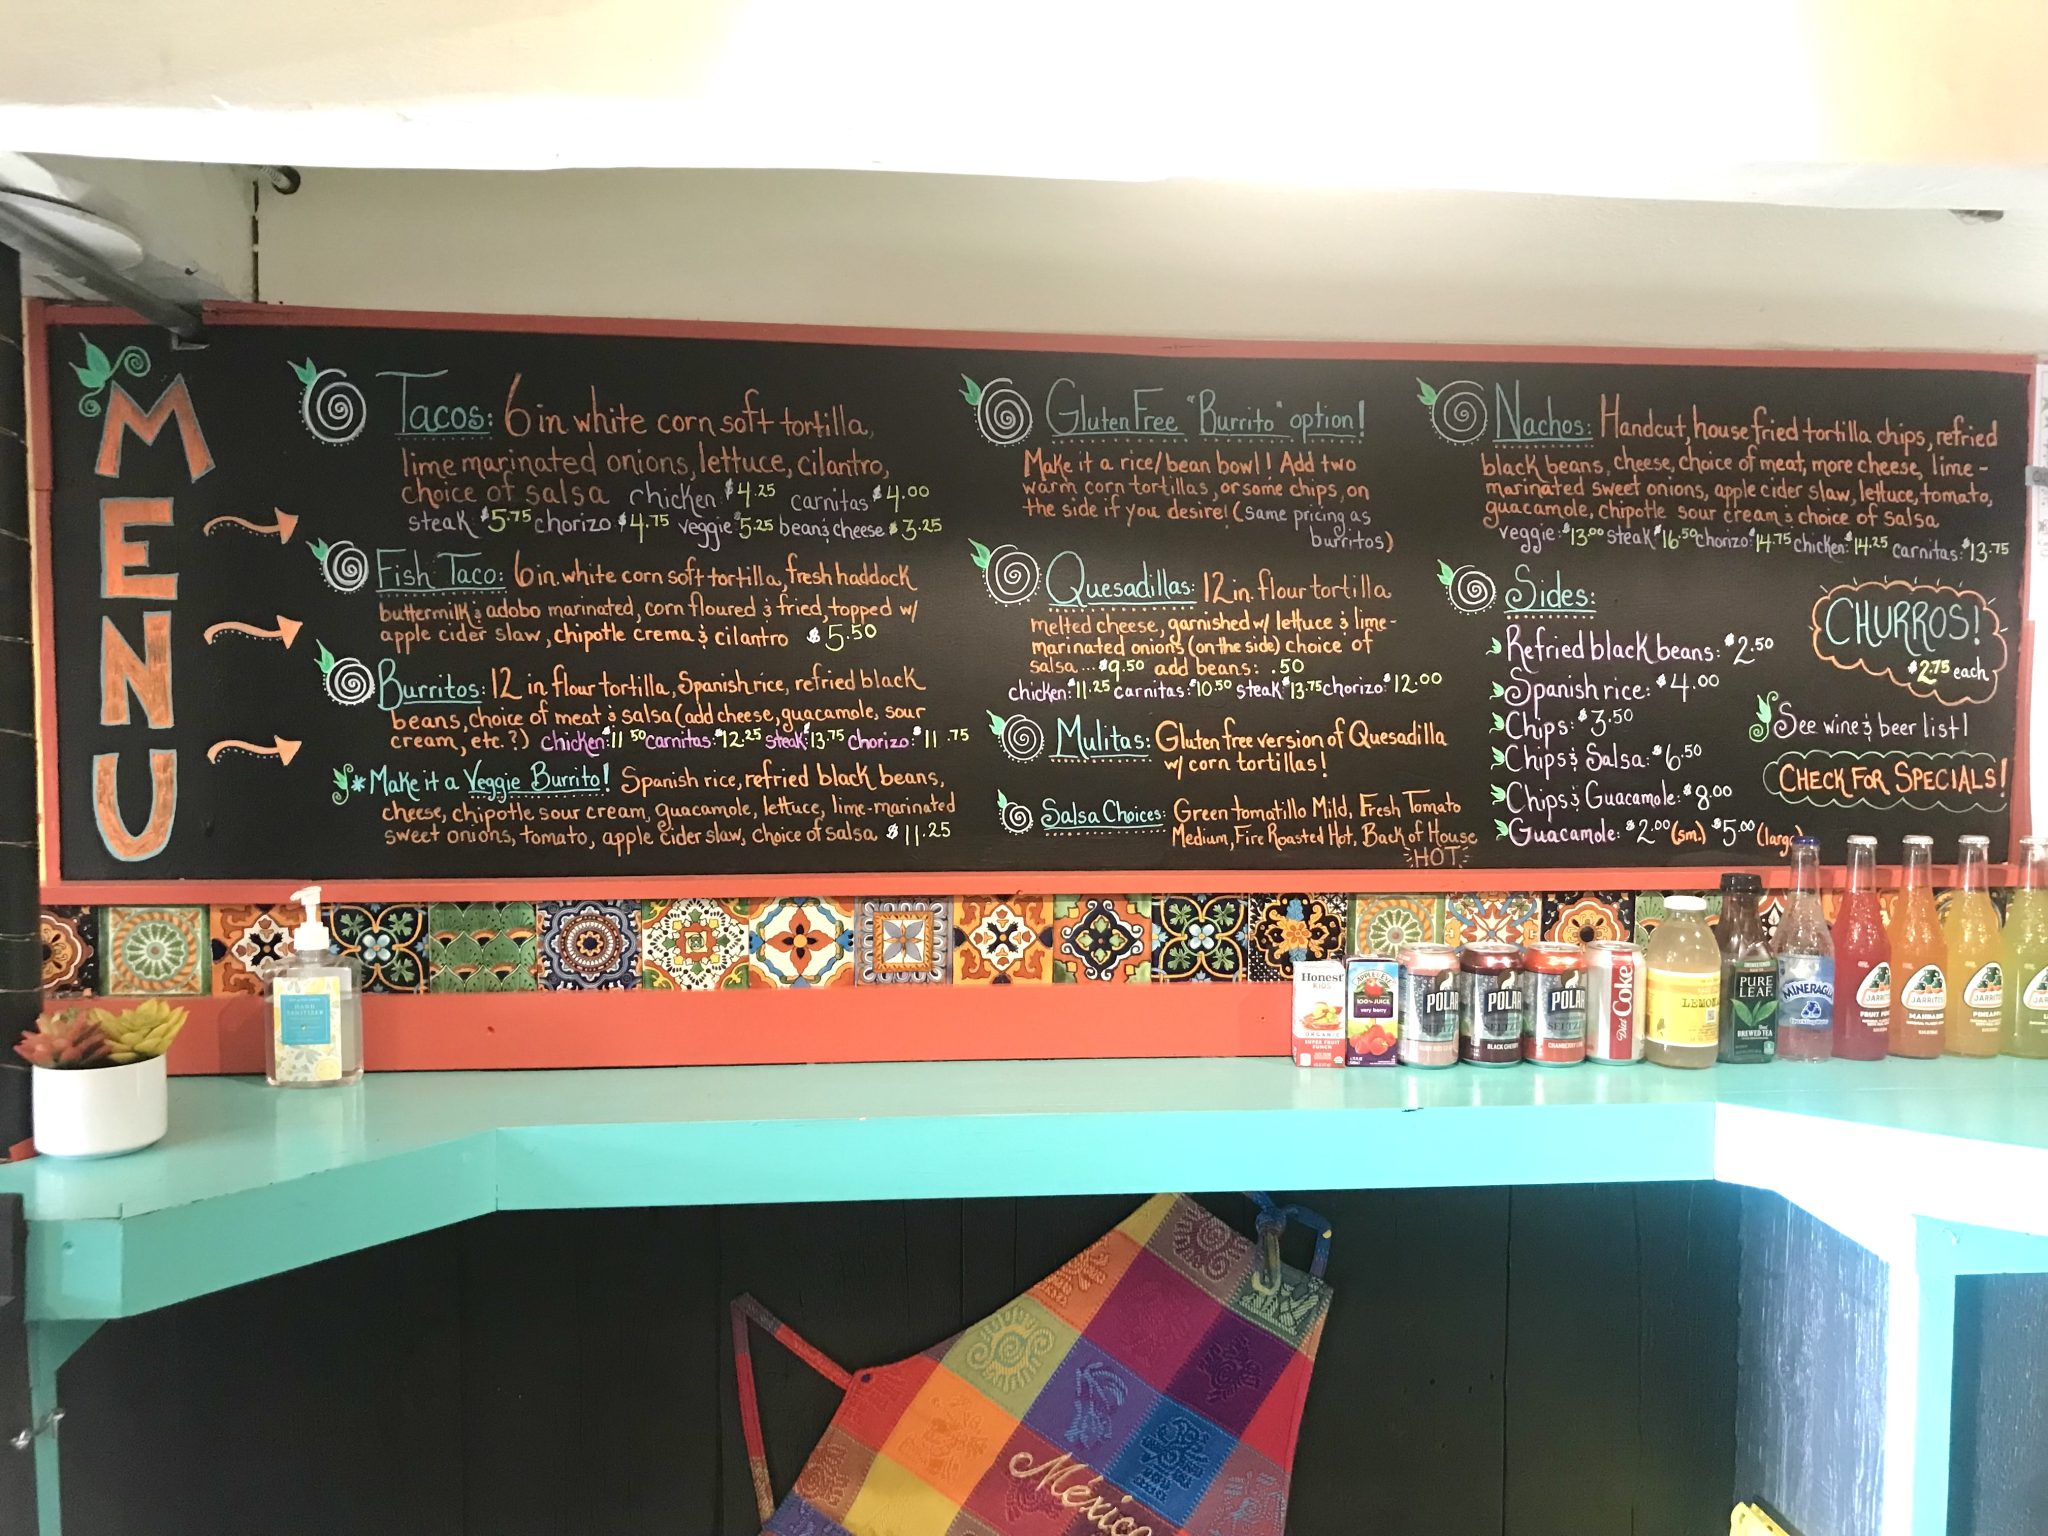 MENU
Tacos: 6 in white corn soft tortilla,
lime marinated onions, lettuce, cilantro,
choice of salsa chicken $4.25 carnitas $4.00
steak $5.75 chorizo $4.75 veggie $5.25 bean & cheese $3.25
Fish Taco: 6 in. white corn soft tortilla, fresh haddock
buttermilk & adobo marinated, corn floured & fried, topped w/
apple cider slaw, chipotle crema & cilantro $5.50
Burritos: 12 in flour tortilla, Spanish rice, refried black
beans, choice of meat & salsa (add cheese, guacamole, sour
cream, etc.?) chicken: $11.50 carnitas: $12.25 steak: $13.75 chorizo: $11.75
* Make it a Veggie Burrito! Spanish rice, refried black beans,
cheese, chipotle sour cream, guacamole, lettuce, lime-marinated
sweet onions, tomato, apple cider slaw, choice of salsa $11.25
Gluten Free "Burrito" option!
Make it a rice/bean bowl! Add two
warm corn tortillas, or some chips, on
the side if you desire! (same pricing as
burritos)
Quesadillas: 12 in. flour tortilla
melted cheese, garnished w/ lettuce & lime-
marinated onions (on the side) choice of
salsa... $9.50 add beans: .50
chicken: $11.25 carnitas: $10.50 steak $13.75 chorizo: $12.00
Mulitas: Gluten free version of Quesadilla
w/ corn tortillas!
Salsa Choices: Green tomatillo Mild, Fresh Tomato
Medium, Fire Roasted Hot, Back of House
HOT
Nachos: Handcut, house fried tortilla chips, refried
black beans, cheese, choice of meat, more cheese, lime-
marinated sweet onions, apple cider slaw, lettuce, tomato,
guacamole, chipotle sour cream & choice of salsa
veggie: $13.00 steak $16.50 chorizo: $14.75 chicken: $14.25 carnitas: $13.75
Sides:
Refried black beans: $2.50
Spanish rice: $4.00
Chips: $3.50
Chips & Salsa: $6.50
Chips & Guacamole: $8.00
Guacamole: $2.00 (sm.) $5.00 (large
CHURROS!
$2.75 each
See wine & beer list!
CHECK FOR SPECIALS!
HAND
SANITIZER
Honest
KIDS
ORGANIC
SUPER FRUIT
PUNCH
APPLE & EVE
100% JUICE
very berry
POLAR
SELTZER
POLAR
SELTZER
BLACK CHERRY
POLAR
SELTZER
CRANBERRY LIME
Diet Coke
PURE
LEAF
BREWED TEA
MINERAGUA
JARRITOS
FRUIT PUNCH
JARRITOS
MANDARIN
JARRITOS
PINEAPPLE
México